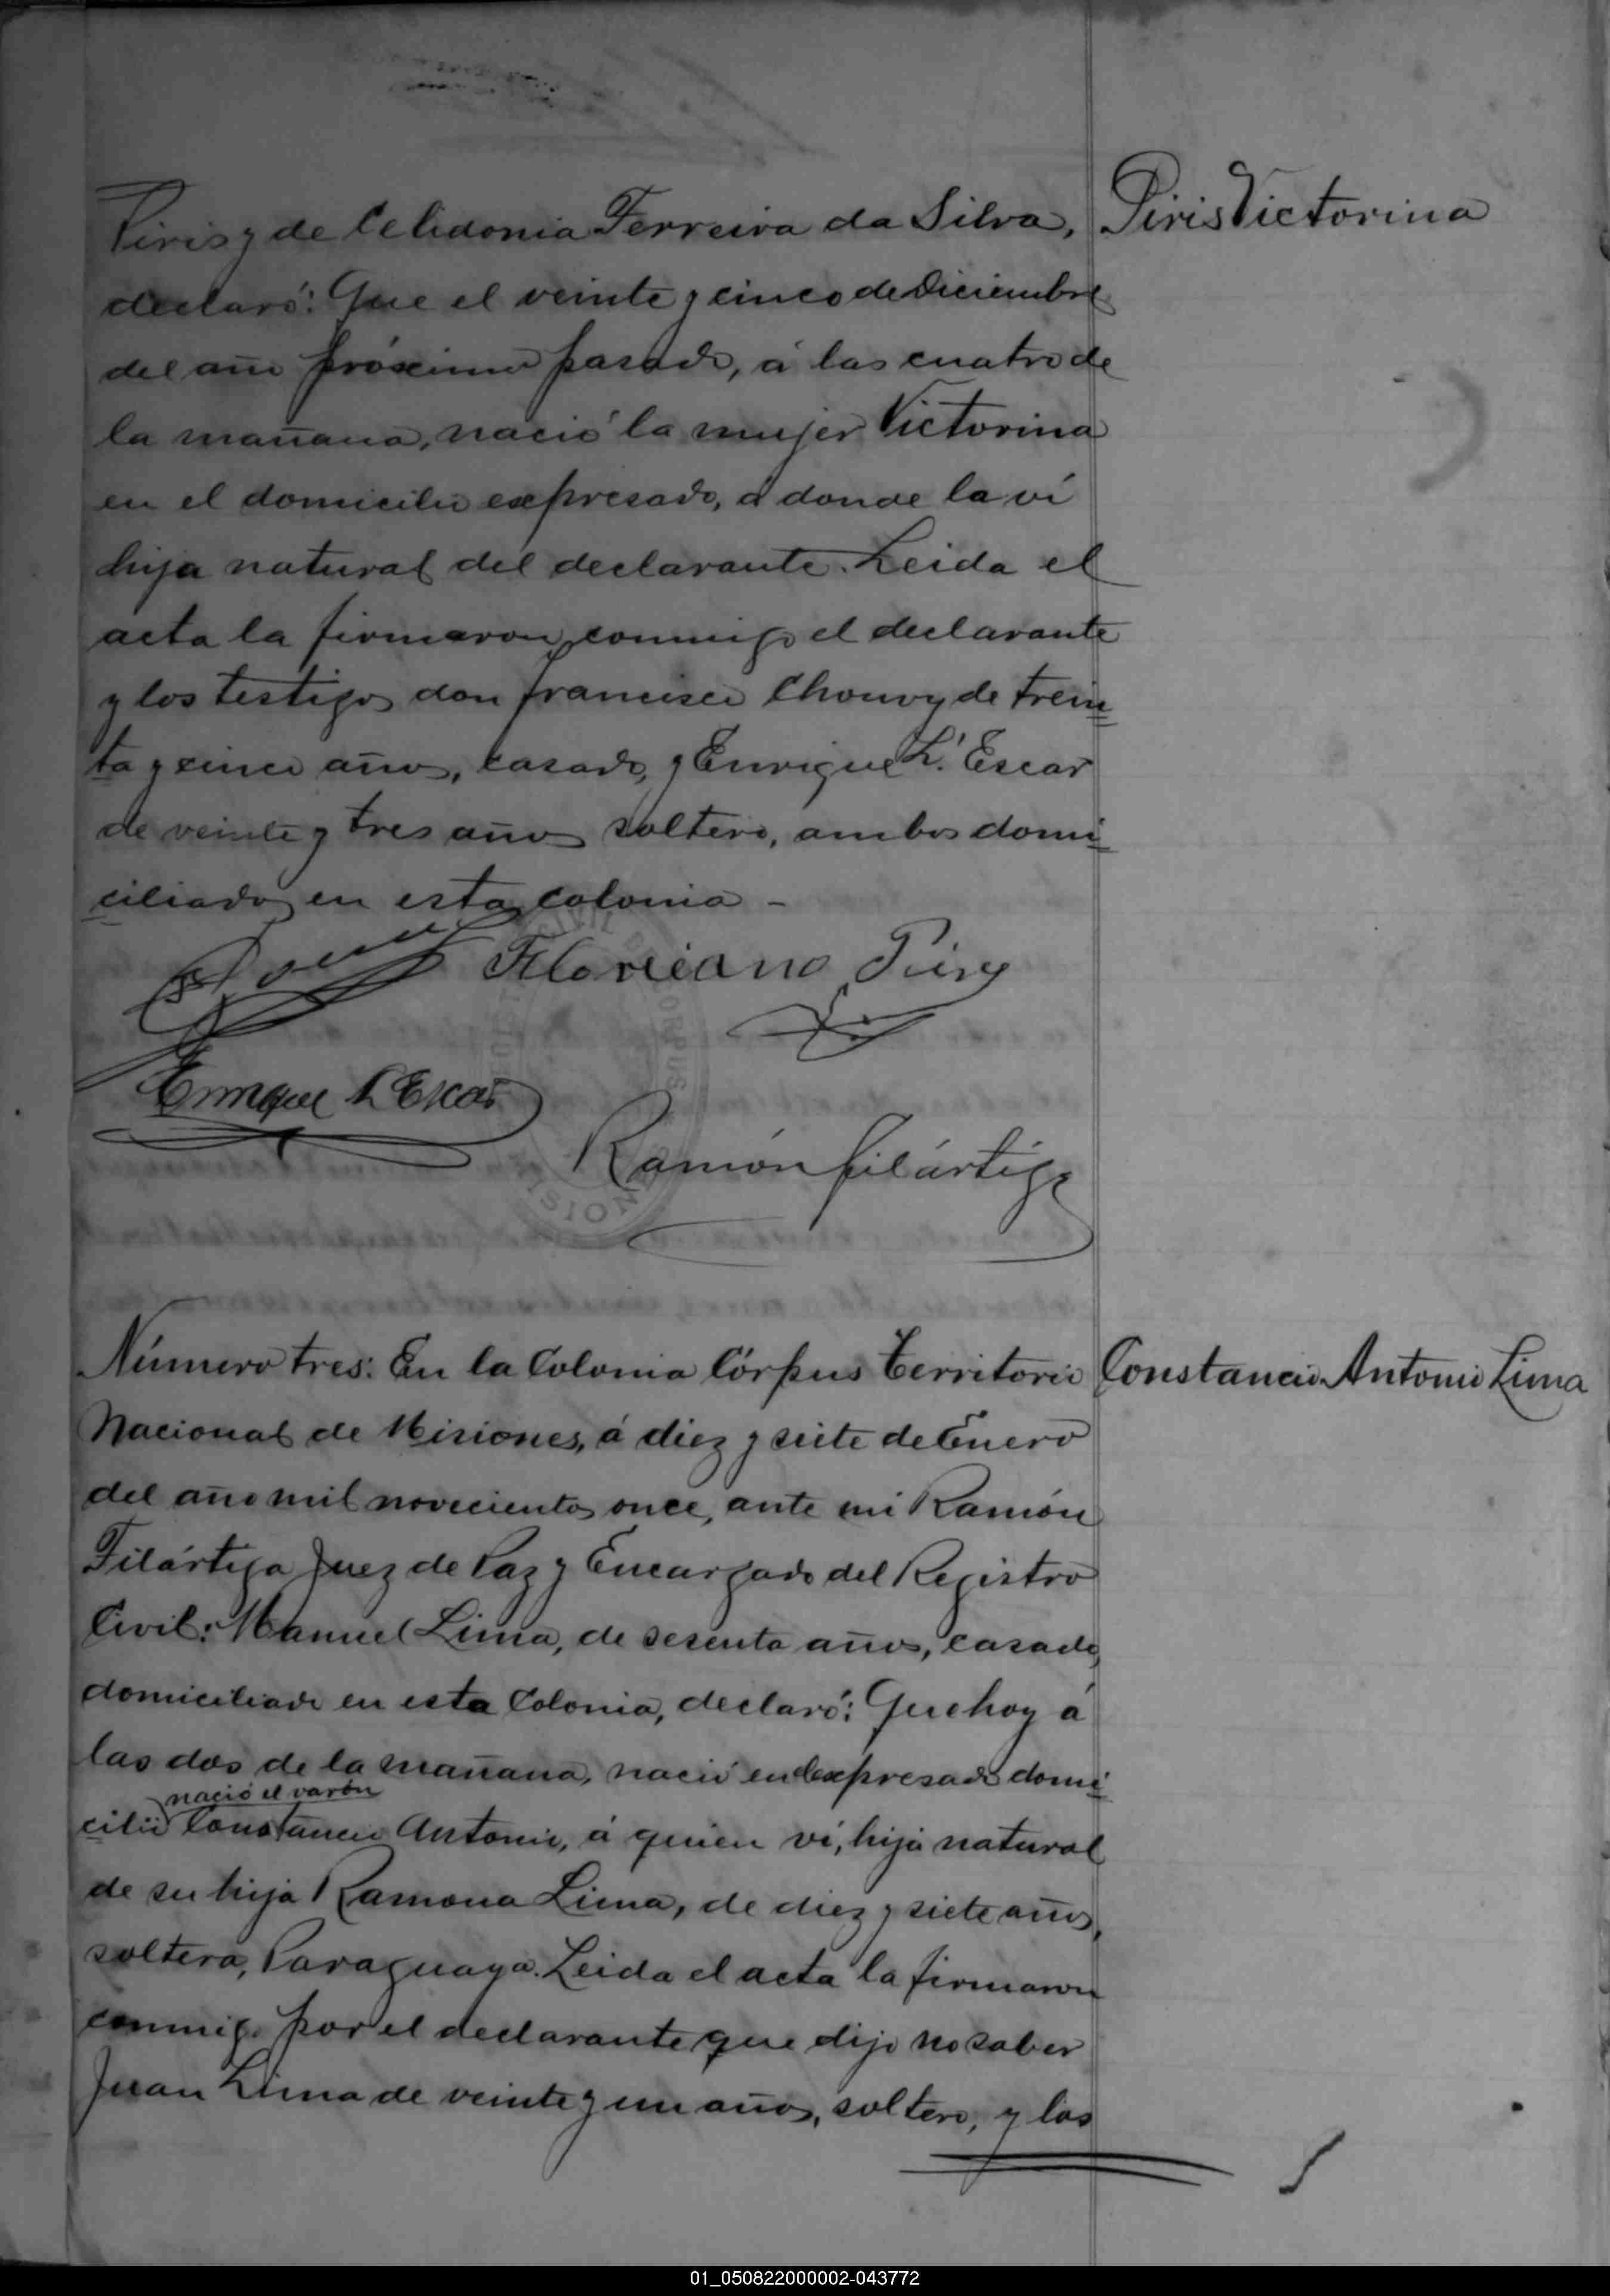 Piris y de Celidonia Ferreira da Silva,
Piris Victorina
declaró: Que el veinte y cinco de Diciembre
del año próximo pasado, á las cuatro de
la mañana, nació la mujer Victorina
en el domicilio expresado, a donde la ví
hija natural del declarante. Leida el
acta la firmaron conmigo el declarante
y los testigos don Francisco Chouvy de trein
ta y cinco años, casado, y Enrique L. Escar
de veinte y tres años soltero, ambos domi
ciliados en esta colonia -
Floriciano Piris
Enrique L Escar
Ramón Filártiga
CIVIL
CORPUS
MISIONES
Número tres: En la Colonia Córpus Territorio
Constancio Antonio Lima
Nacional de Misiones, á diez y siete de Enero
del año mil novecientos once, ante mi Ramón
Filártiga Juez de Paz y Encargado del Registro
Civil: Manuel Lima, de sesenta años, casado,
domiciliado en esta Colonia, declaró: Que hoy á
las dos de la mañana, nació en el expresado domi
nació el varón
cilio Constancio Antonio, á quien ví, hijo natural
de su hija Ramona Lima, de diez y siete años,
soltera, Paraguaya. Leida el acta la firmaron
conmigo por el declarante que dijo no saber
Juan Lima de veinte y un años, soltero, y los
01_050822000002-043772